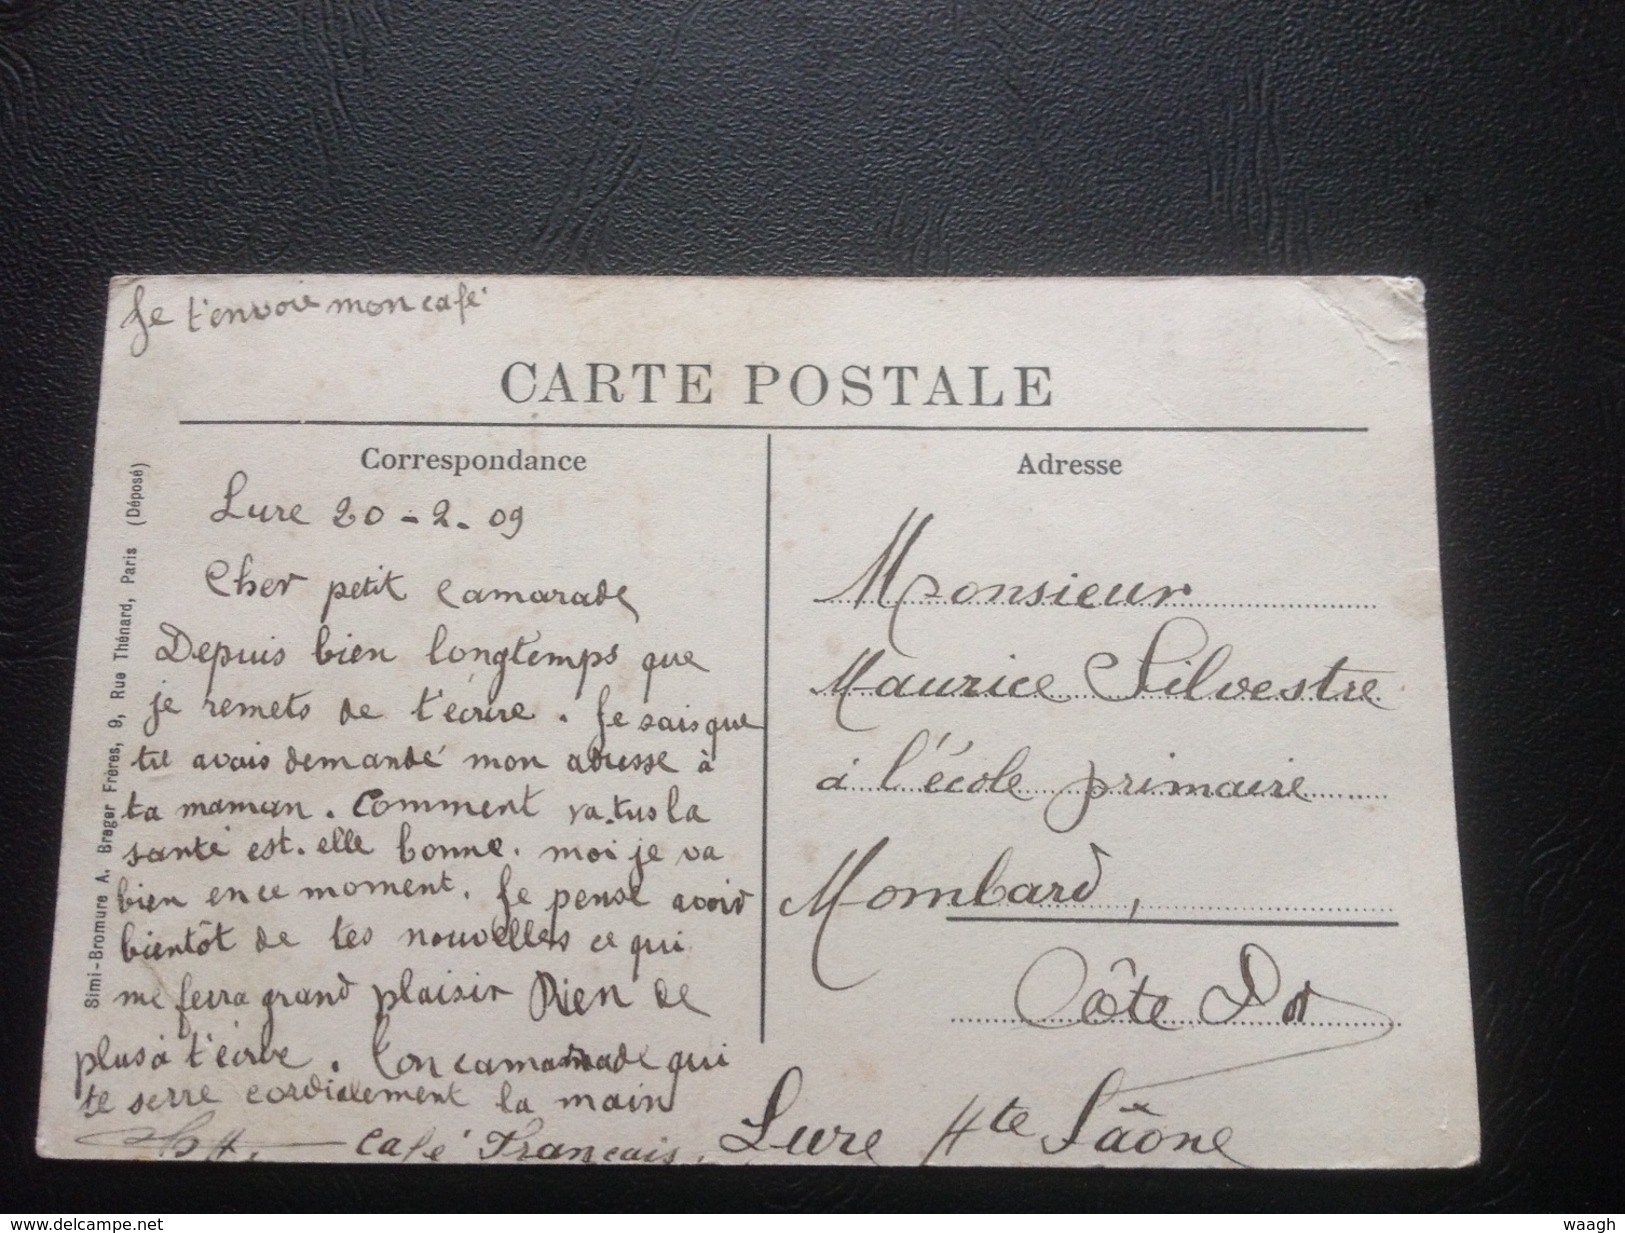 Je t'envoie mon café
CARTE POSTALE
Correspondance
Lure 20-2-09
Cher petit Camarade
Depuis bien longtemps que
je remets de t'écrire. Je sais que
tu avais demandé mon adresse à
ta maman. Comment va.tus la
santé est.elle bonne. moi je va
bien en ce moment. Je pense avoir
bientôt de tes nouvelles ce qui
me ferra grand plaisir Rien de
plus à t'écrire. Ton camarade qui
te serre cordialement la main
Café Francais.
Lure Hte Saône
Adresse
Monsieur
Maurice Silvestre
à l'école primaire
Mombard,
Côte D'or
Simi-Bromure A. Breger Frères, 9, Rue Thénard, Paris (Déposé)
www.delcampe.net
waagh